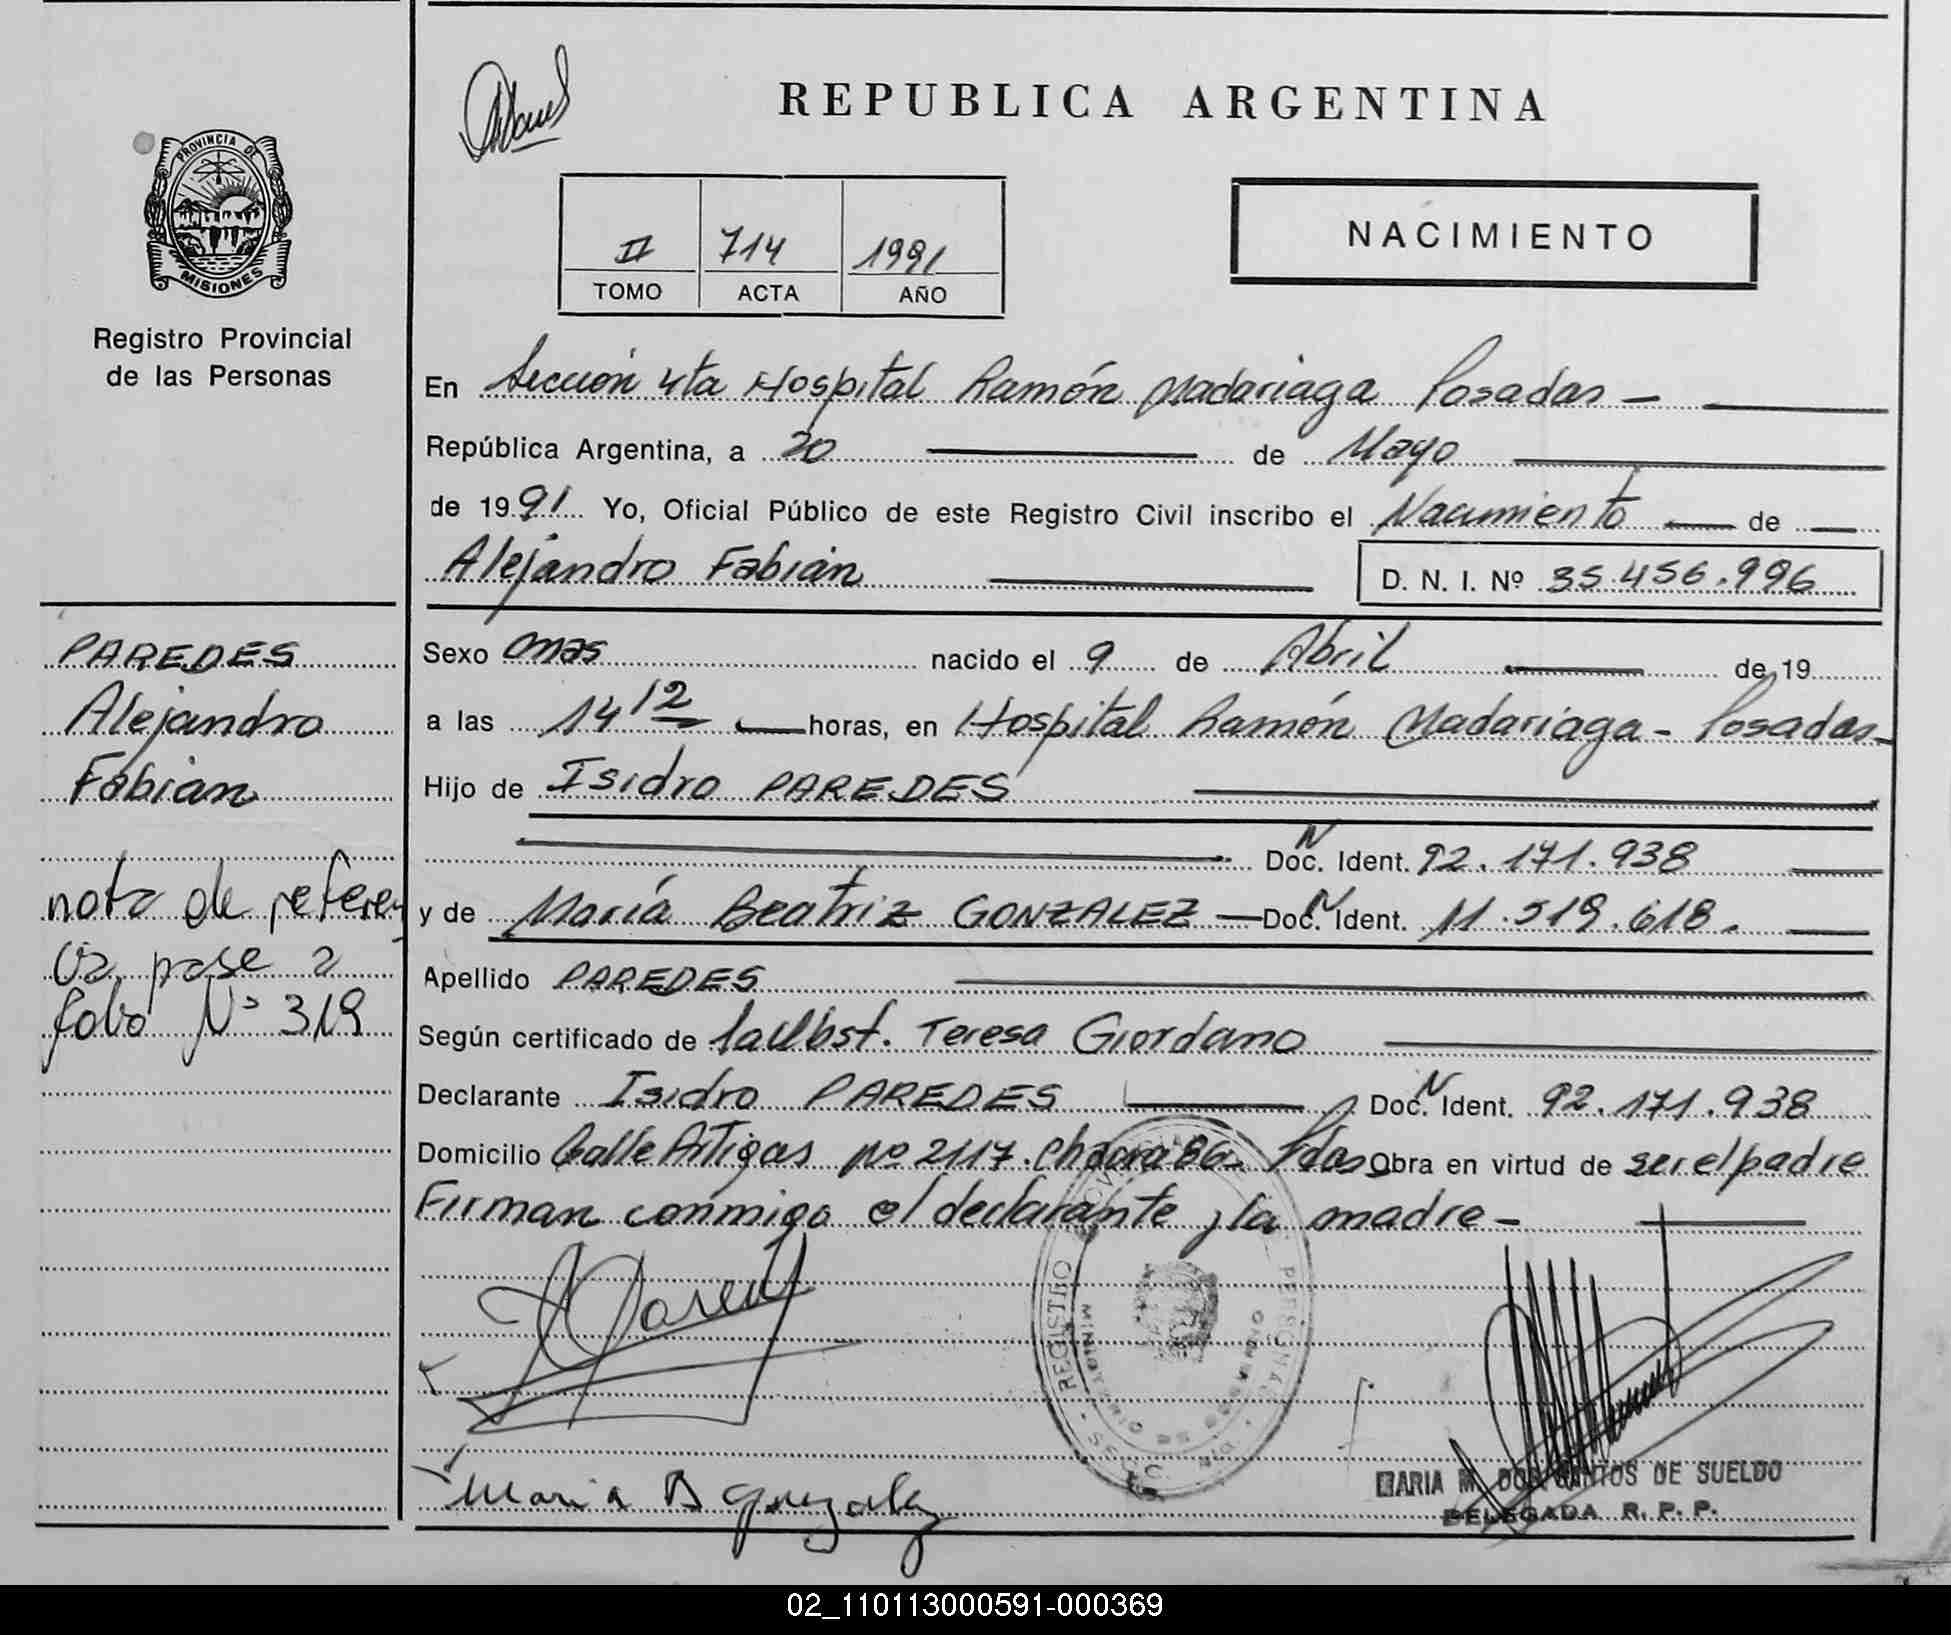 REPUBLICA ARGENTINA
PROVINCIA DE
MISIONES
II 714 1991
TOMO ACTA AÑO
NACIMIENTO
Registro Provincial
de las Personas
En Sección 4ta Hospital Ramón Madariaga Posadas —
República Argentina, a 20 de Mayo
de 1991 Yo, Oficial Público de este Registro Civil inscribo el Nacimiento — de —
Alejandro Fabián D. N. I. Nº 35.456.996
PAREDES
Alejandro
Fabian
nota de referen
cia pase a
folio Nº 319
Sexo mas nacido el 9 de Abril de 19
a las 14 12 horas, en Hospital Ramón Madariaga - Posadas -
Hijo de Isidro PAREDES
Doc. N Ident. 92.171.938
y de María Beatriz GONZALEZ — Doc. N Ident. 11.519.618.
Apellido PAREDES
Según certificado de la Obst. Teresa Giordano
Declarante Isidro PAREDES Doc. N Ident. 92.171.938
Domicilio Calle Artigas nº 2117. Chacra 86 - Pdas Obra en virtud de ser el padre
Firman conmigo el declarante y la madre -
REGISTRO PROVINCIAL DE PERSONAS
Maria B Gonzalez
MARIA M. DOS SANTOS DE SUELDO
DELEGADA R. P. P.
02_110113000591-000369